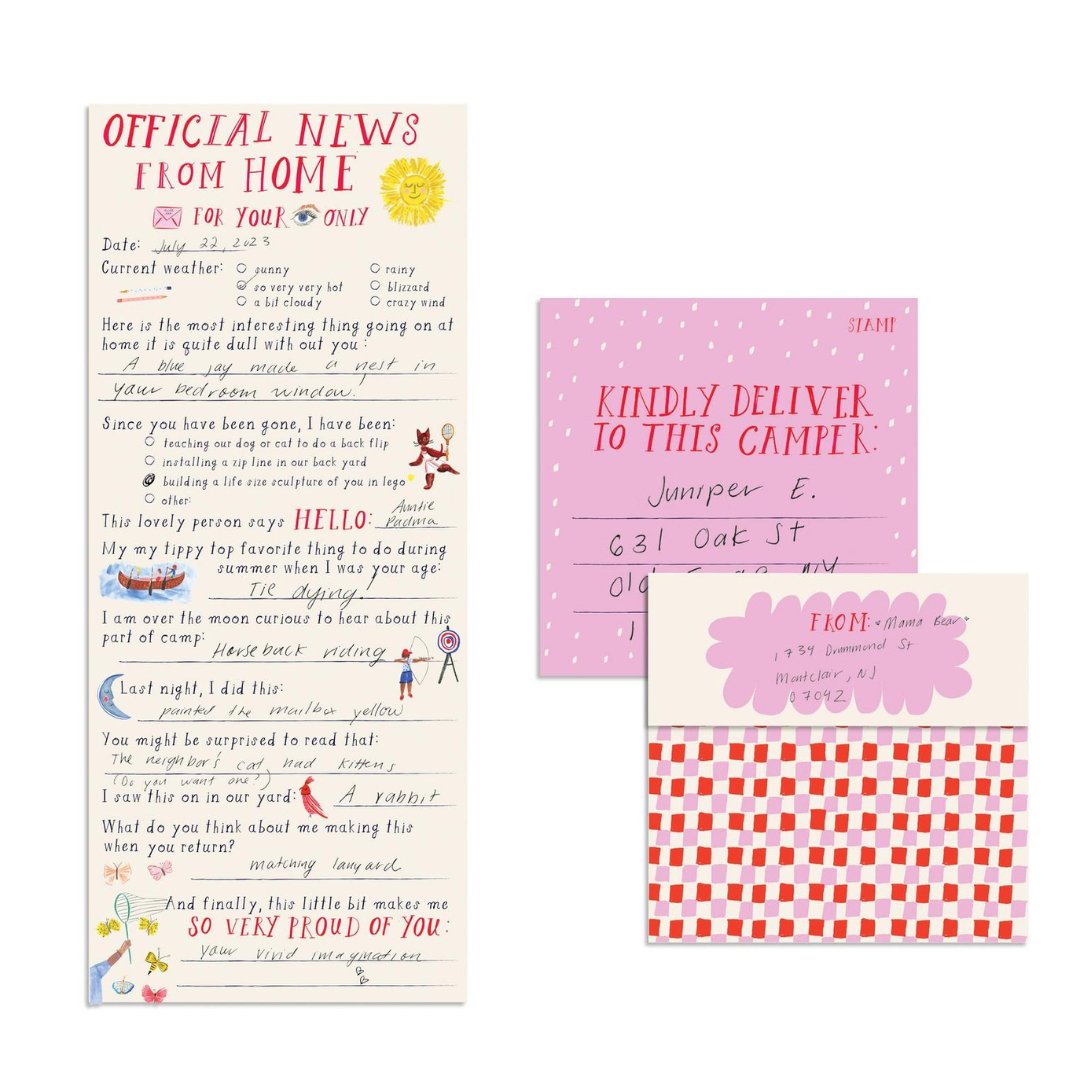 OFFICIAL NEWS
FROM HOME
FOR YOUR ONLY
Date: July 22, 2023
Current weather:
sunny
so very very hot
a bit cloudy
rainy
blizzard
crazy wind
Here is the most interesting thing going on at
home it is quite dull with out you:
A blue jay made a nest in
your bedroom window!
Since you have been gone, I have been:
teaching our dog or cat to do a back flip
installing a zip line in our back yard
building a life size sculpture of you in lego
other:
This lovely person says HELLO: Auntie
Padma
My my tippy top favorite thing to do during
summer when I was your age:
Tie dying!
I am over the moon curious to hear about this
part of camp:
Horseback riding
Last night, I did this:
painted the mailbox yellow
You might be surprised to read that:
The neighbor's cat had kittens
(Do you want one?)
I saw this on in our yard: A rabbit
What do you think about me making this
when you return?
matching lanyard
And finally, this little bit makes me
SO VERY PROUD OF YOU:
your vivid imagination
STAMP
KINDLY DELIVER
TO THIS CAMPER:
Juniper E.
631 Oak St
Old NY
1
FROM: Mama Bear
1734 Drummond St
Montclair, NJ
07042